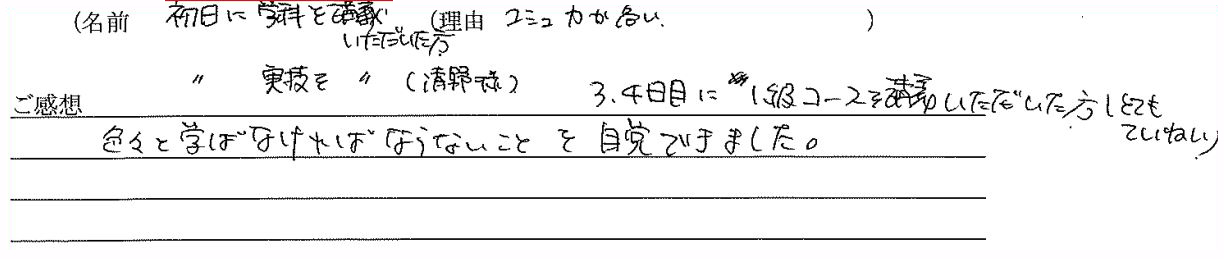 (名前 初日に学科を講義 (理由 コミュ力が高い。 )
いただいた方
〃 実技を 〃 (清野様) 3.4日目に 1級コースを講義いただいた方(とても
ていねい)
ご感想
色々と学ばなければならないことを自覚できました。